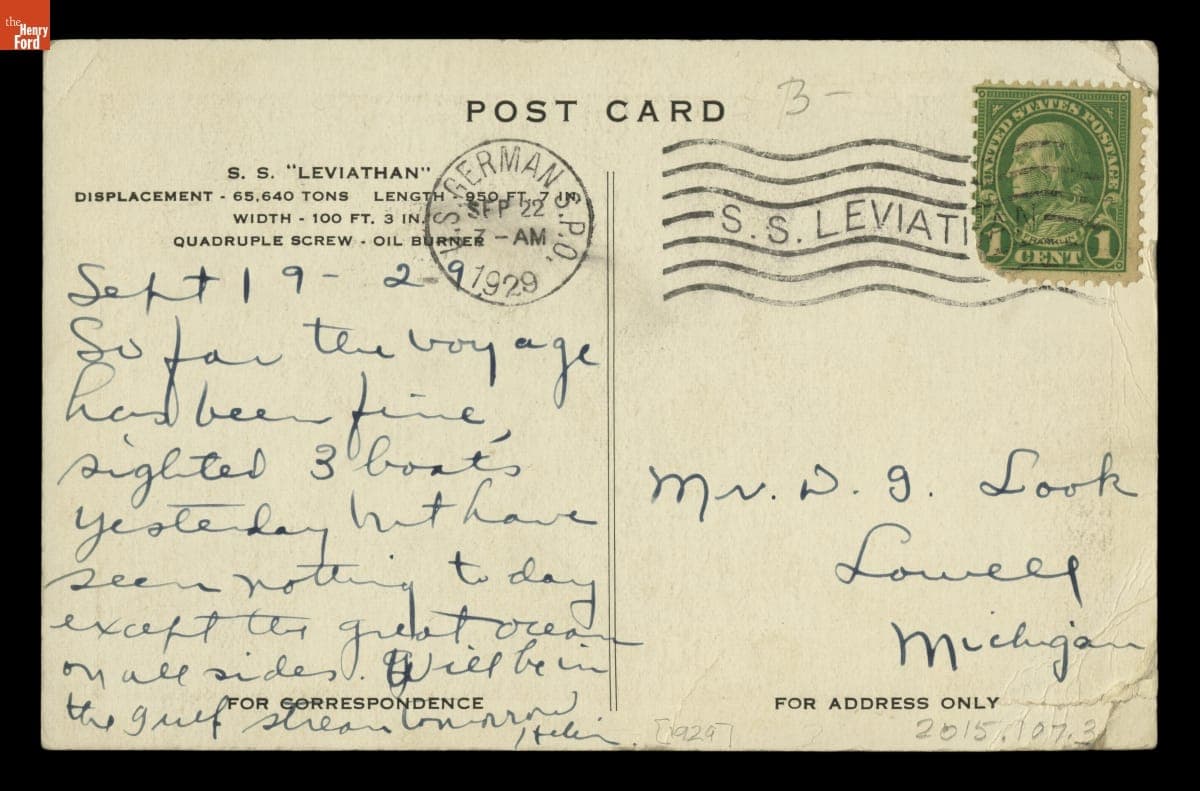 the
Henry
Ford
3 -
POST CARD
S. S. "LEVIATHAN"
DISPLACEMENT - 65,640 TONS LENGTH - 950 FT. 7 IN.
WIDTH - 100 FT. 3 IN.
QUADRUPLE SCREW - OIL BURNER
U.S. GERMAN S.P.O.
SEP 22
7 - AM
1929
S. S. LEVIATHAN
UNITED STATES POSTAGE
FRANKLIN
1 1
CENT
Sept 19 - 29
So far the voyage
has been fine,
sighted 3 boats
yesterday but have
seen nothing to day
except the great ocean
on all sides. Will be in
the gulf stream tomorrow
Helen.
FOR CORRESPONDENCE
Mr. D. G. Look
Lowell
Michigan
FOR ADDRESS ONLY
[1929]
2015.107.3